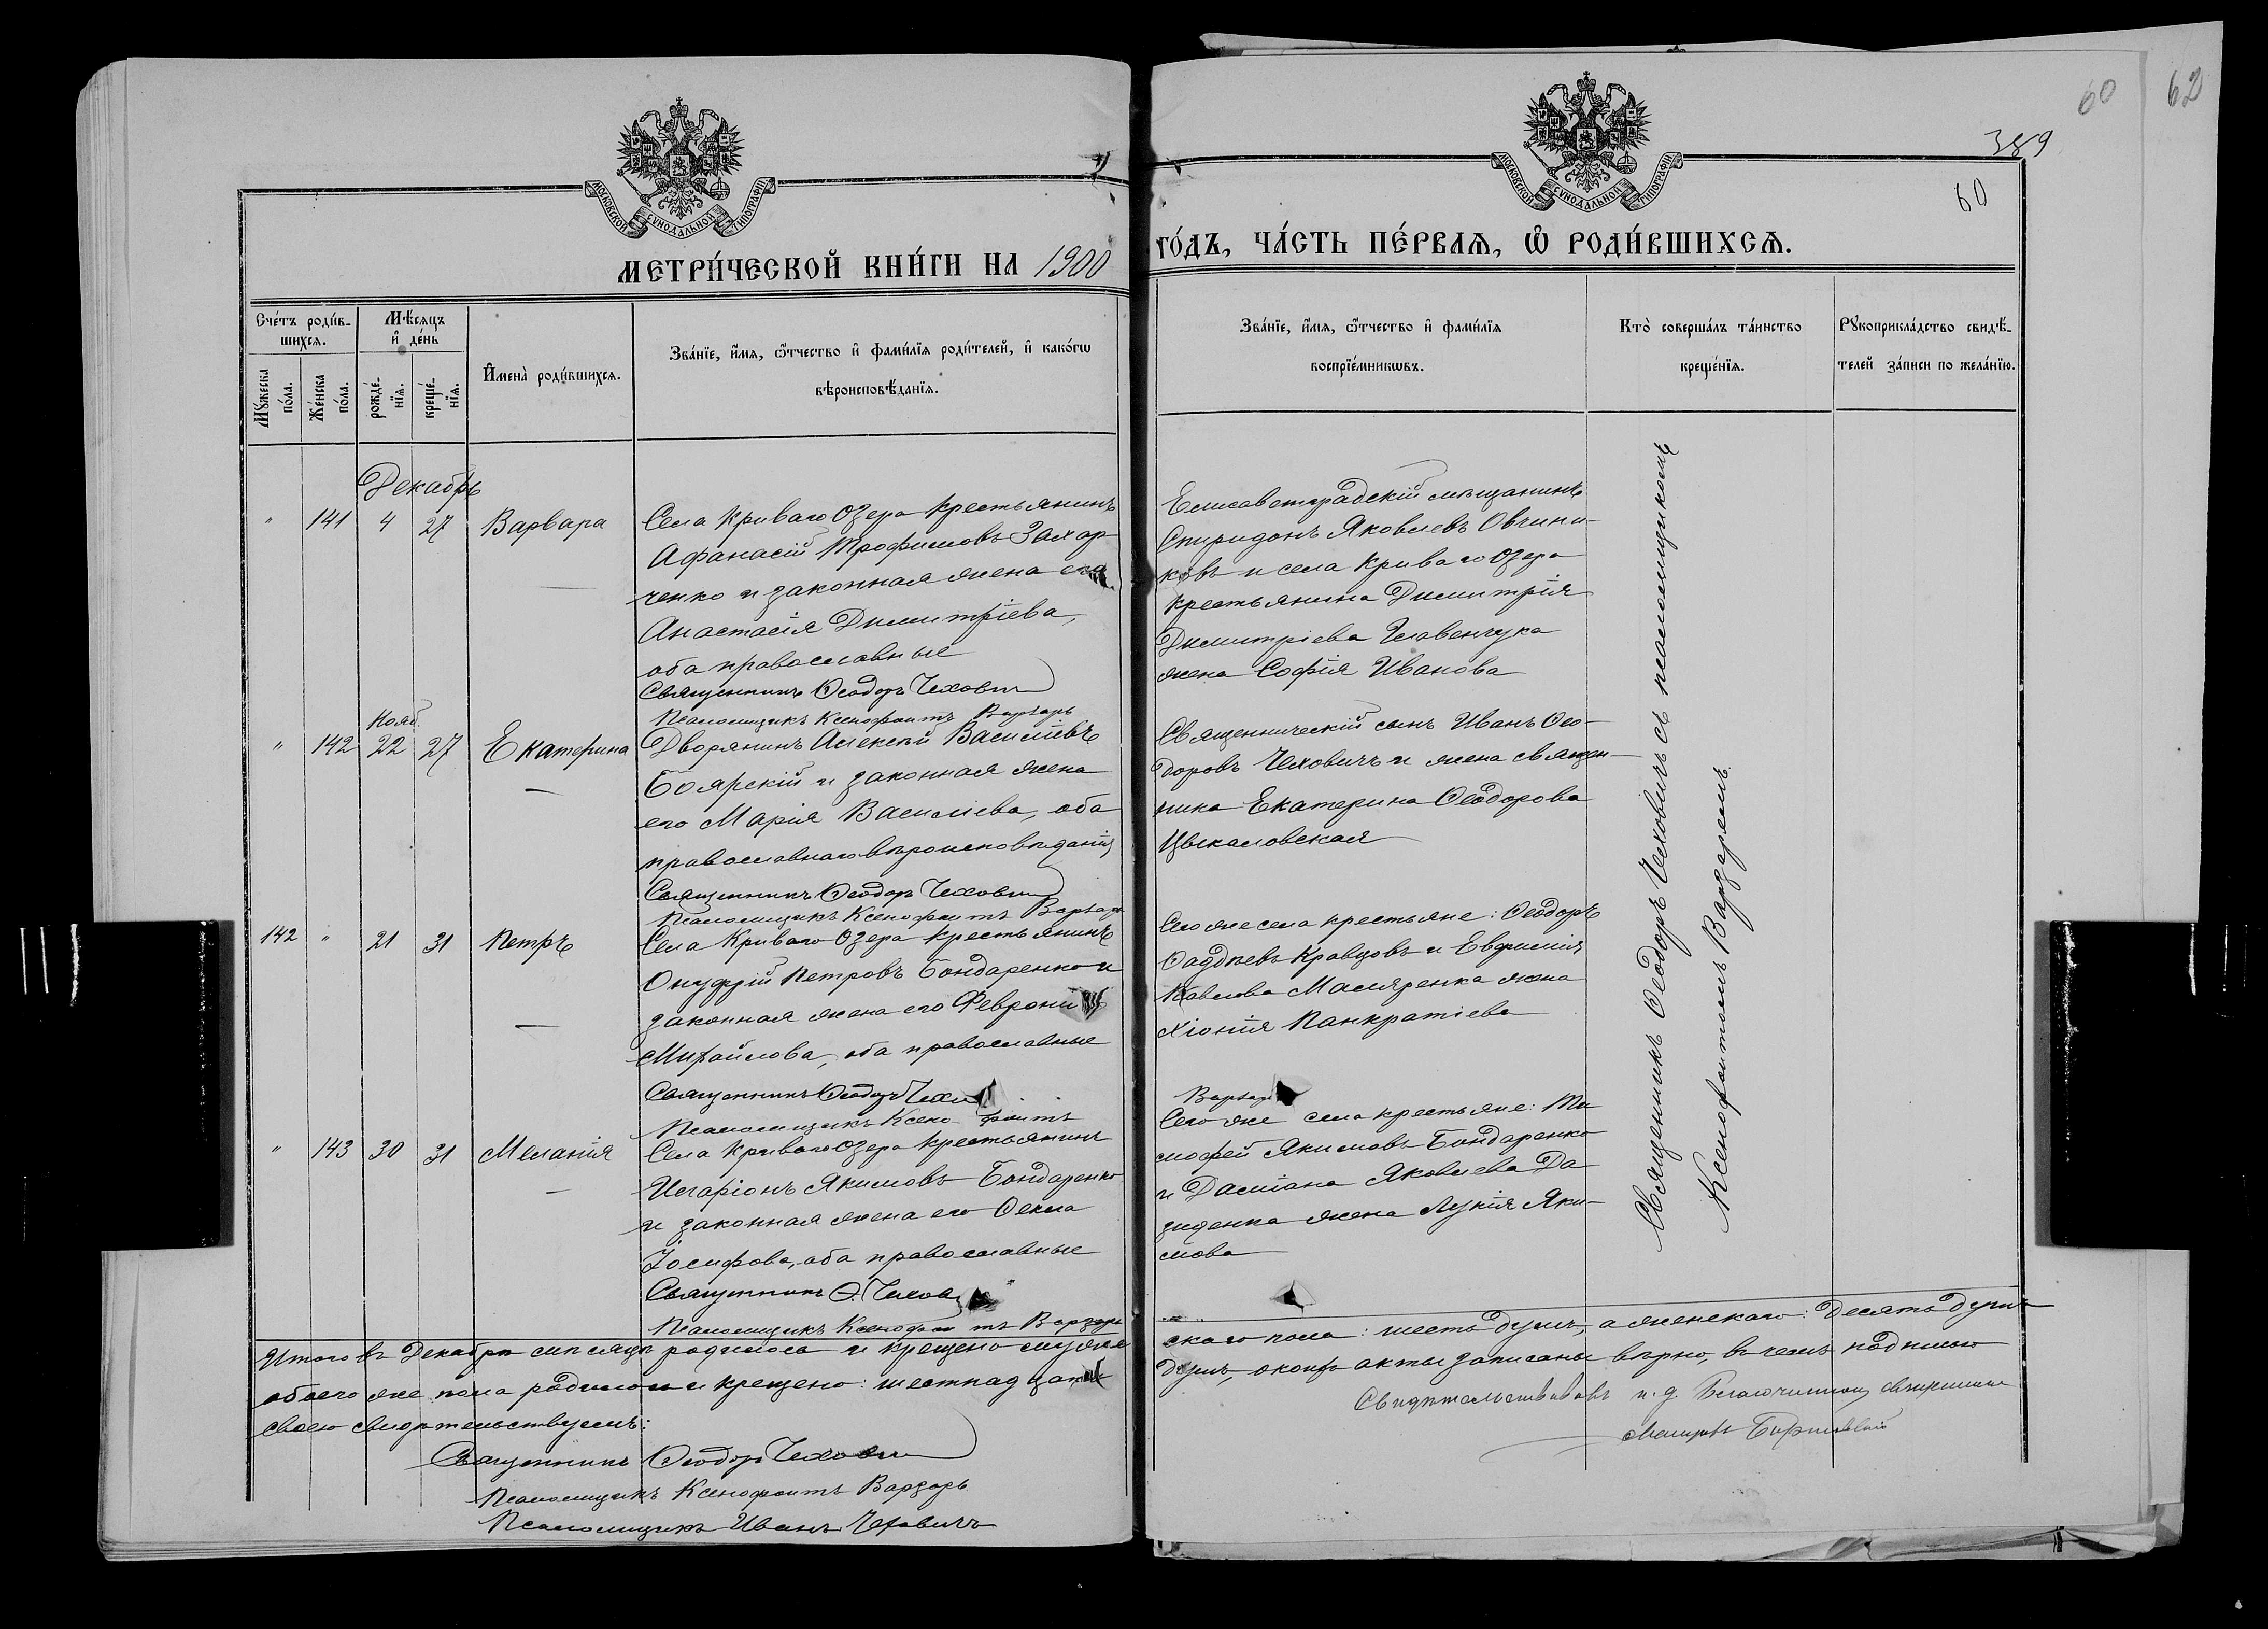 60
62
389
60
МОСКОВСКОЙ СУНОДАЛЬНОЙ ТИПОГРАФІИ
МОСКОВСКОЙ СУНОДАЛЬНОЙ ТИПОГРАФІИ
МЕТРИ́ЧЕСКОЙ КНИ́ГИ НА 1900
ГО́ДЪ, ЧА́СТЬ ПЕ́РВАѦ, Ѽ РОДИ́ВШИХСѦ.
Сче́тъ роди́в-
шихсѧ.
Мѣ́сяцъ
и҆ де́нь
Мꙋ́жеска
по́ла.
Же́нска
по́ла.
рожде́-
нїѧ.
креще́-
нїѧ.
И҆мена̀ роди́вшихсѧ.
Зва́нїе, и҆́мѧ, ѻ҆́тчество и҆ фами́лїѧ роди́телей, и҆ како́гѡ
вѣроисповѣ́данїѧ.
Зва́нїе, и҆́мѧ, ѻ҆́тчество и҆ фами́лїѧ
воспрїе́мникѡвъ.
Кто̀ соверша́лъ та́инство
креще́нїѧ.
Рꙋкоприкла́дство свидѣ́-
телей за́писи по жела́нїю.
Декабрь
" 141 4 27 Варвара
Села Криваго Озера крестьянинъ
Афанасій Трофимовъ Захар
ченко и законная жена его
Анастасія Димитріева,
оба православные
Священникъ Ѳеодоръ Чеховичъ
Псаломщикъ Ксенофонтъ Варзарь
Елисаветградскій мѣщанинъ
Спиридонъ Яковлевъ Овчини-
ковъ и села Криваго Озера
крестьянина Димитрія
Димитріева
жена Софія Иванова
Нояб.
" 142 22 27 Екатерина
Дворянинъ Алексѣй Василіевъ
Боярскій и законная жена
его Марія Василіева, оба
православнаго вѣроисповѣданія
Священникъ Ѳеодоръ Чеховичъ
Псаломщикъ Ксенофонтъ Варзарь
Священническій сынъ Иванъ Ѳео-
доровъ Чеховичъ и жена священ-
ника Екатерина Ѳеодорова
142 " 21 31 Петръ
Села Криваго Озера крестьянинъ
Онуфрій Петровъ Бондаренко и
законная жена его Феврони
Михайлова, оба православные
Священникъ Ѳеодоръ Чехо
Псаломщикъ Ксено фонтъ
Сего же села крестьяне: Ѳеодоръ
Ѳаддѣевъ Кравцовъ и Евфимія
Павлова Масляренка жена
Хіонія Панкратіева
Варзарь
" 143 30 31 Меланія
Села Криваго Озера крестьянинъ
Иларіонъ Якимовъ Бондаренко
и законная жена его Ѳекла
Іосифова, оба православные
Священникъ Ѳ. Чехов
Псаломщикъ Ксенофон тъ Варзарь
Сего же села крестьяне: Ти
мофей Якимовъ Бондаренко
и Даміана Яковлева Да
виденка жена Лукія Яки-
мова
Священникъ Ѳеодоръ Чеховичъ съ псаломщикомъ
Ксенофонтомъ Варзаремъ.
Итого въ Декабрѣ мѣсяцѣ родилось и крещено муже
скаго пола: шесть душъ, а женскаго: десять душъ
обоего же пола родилось и крещено: шестнадцать
душъ, акты записаны вѣрно, въ чемъ подписью
своею свидѣтельствуемъ:
Священникъ Ѳеодоръ Чеховичъ
Псаломщикъ Ксенофонтъ Варзарь
Псаломщикъ Иванъ Чеховичъ
Свидѣтельствовалъ и. д. Благочиннаго священникъ